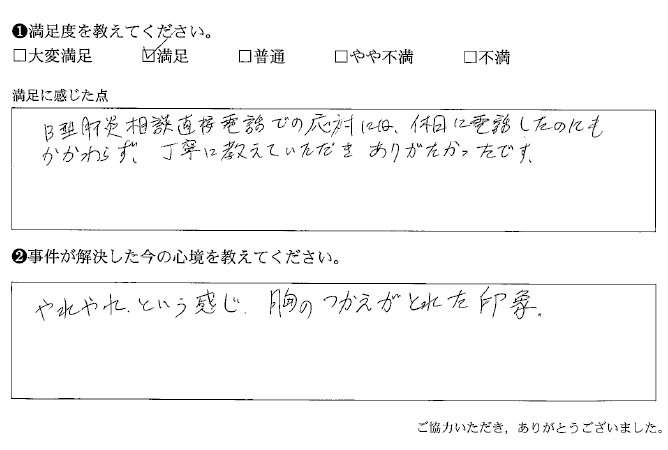 ❶満足度を教えてください。
□大変満足 ☑満足 □普通 □やや不満 □不満
満足に感じた点
B型肝炎相談直接電話での応対には、休日に電話したのにも
かかわらず、丁寧に教えていただきありがたかったです。
❷事件が解決した今の心境を教えてください。
やれやれ、という感じ、胸のつかえがとれた印象。
ご協力いただき，ありがとうございました。